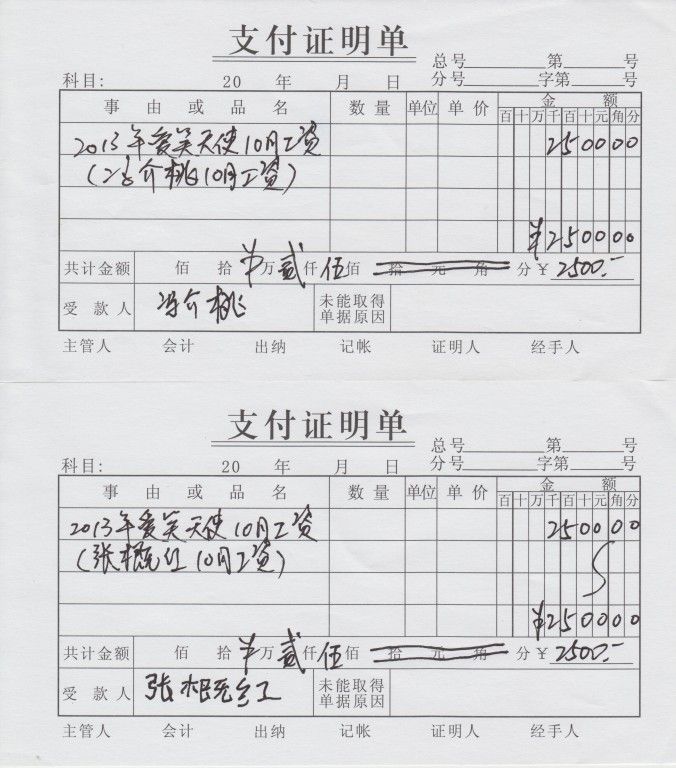 支付证明单
总号 第 号
科目: 20 年 月 日 分号 字第 号
事由或品名 数量 单位 单价 金额
百十万千百十元角分
2013年爱笑天使10月工资 250000
(冯介桃10月工资)
¥250000
共计金额 佰 拾 ¥万 贰仟 伍佰 拾 元 角 分 ¥ 2500.-
受款人 冯介桃 未能取得单据原因
主管人 会计 出纳 记帐 证明人 经手人
支付证明单
总号 第 号
科目: 20 年 月 日 分号 字第 号
事由或品名 数量 单位 单价 金额
百十万千百十元角分
2013年爱笑天使10月工资 250000
(张 红10月工资)
¥250000
共计金额 佰 拾 ¥万 贰仟 伍佰 拾 元 角 分 ¥ 2500.-
受款人 张 红 未能取得单据原因
主管人 会计 出纳 记帐 证明人 经手人